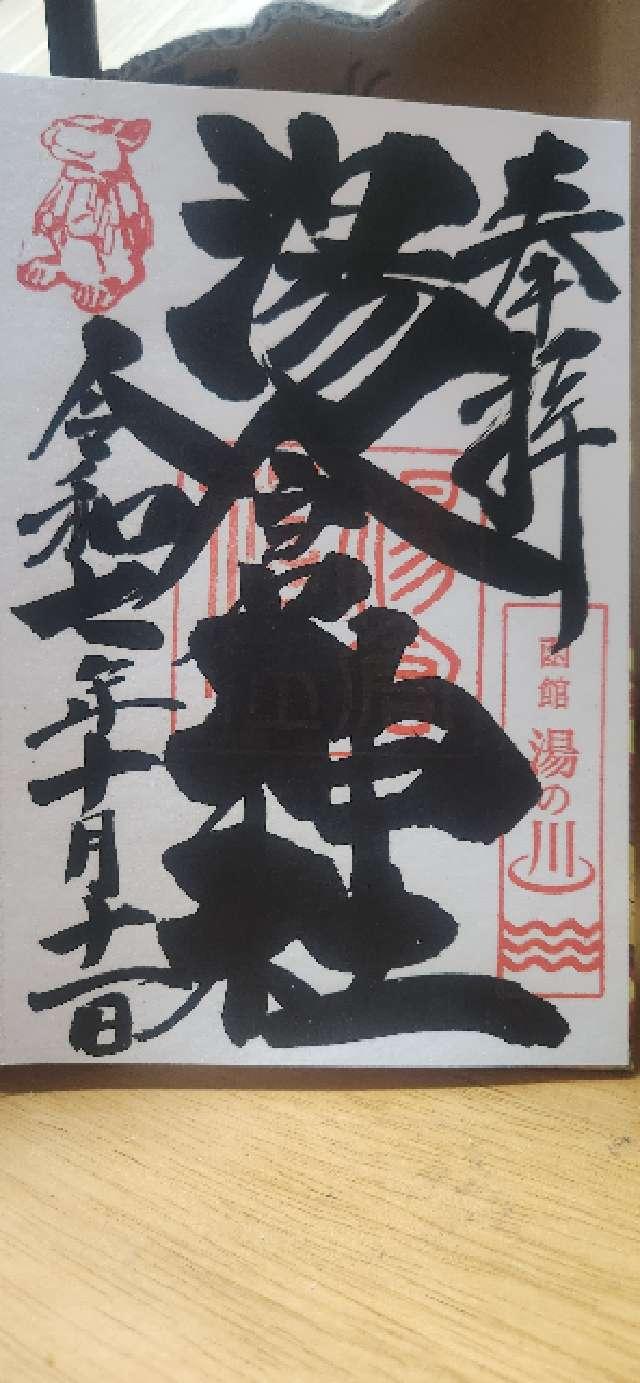 奉拝
函館
湯の川
湯倉神社
令和七年十月十一日